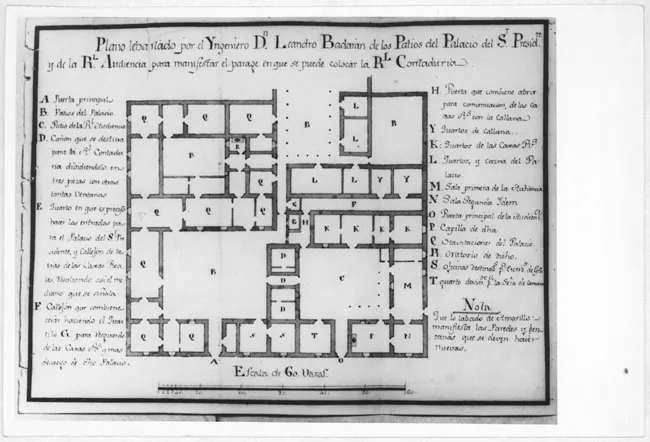 Plano lebantado por el Yngeniero Dn. Leandro Badaran de los Patios del Palacio del Sr. Presidte.
y de la Rl. Audiencia para manifestar el parage en que se puede colocar la Rl. Contaduria.
A Puerta principal
B. Patios del Palacio.
C. Patio de la Rl. Audiencia
D. Cañon que se destina
para la Rl. Contadu
ria dibidiendolo en
tres piezas con otras
tantas Ventanas
E. Quarto en que es preciso
hacer las entradas pa
ra el Palacio del Sr. Pre
sidente, y Callejon de de
tras de las Caxas Rea
les, Rebaxando asi el me
diano que se señala.
F. Callejon que combiene
haciendo el Quar
tito G. para
de las Caxas Rs. y mas
de dho Palacio.
H Puerta que combiene abrir
para comunicacion de las ca
xas Rs. con la Callana
Y Quartos de Callana.
K: Quartos de las Caxas Rs.
L Quartos, y cocina del Pa
lacio.
M. Sala primera de la Audiencia
N Sala Segunda Ydem
O Puerta principal de la Audiencia
P Capilla de dha.
Q Havitaciones del Palacio
R. Oratorio de dicho.
S. Oficinas
T quarto
Nota
Que lo labado de Amarillo
manifiesta las Paredes y ben
tanas que se deven hacer
nuevas.
Q
Q
Q
L
L
B
B
B
R
Q
Q
Q
L
L
Y
Y
Q
Q
Q
E
F
G
H
K
K
K
K
Q
B
D
D
D
C
M
Q
Q
Q
S
S
T
P
N
A
O
Escala de 60 Varas.